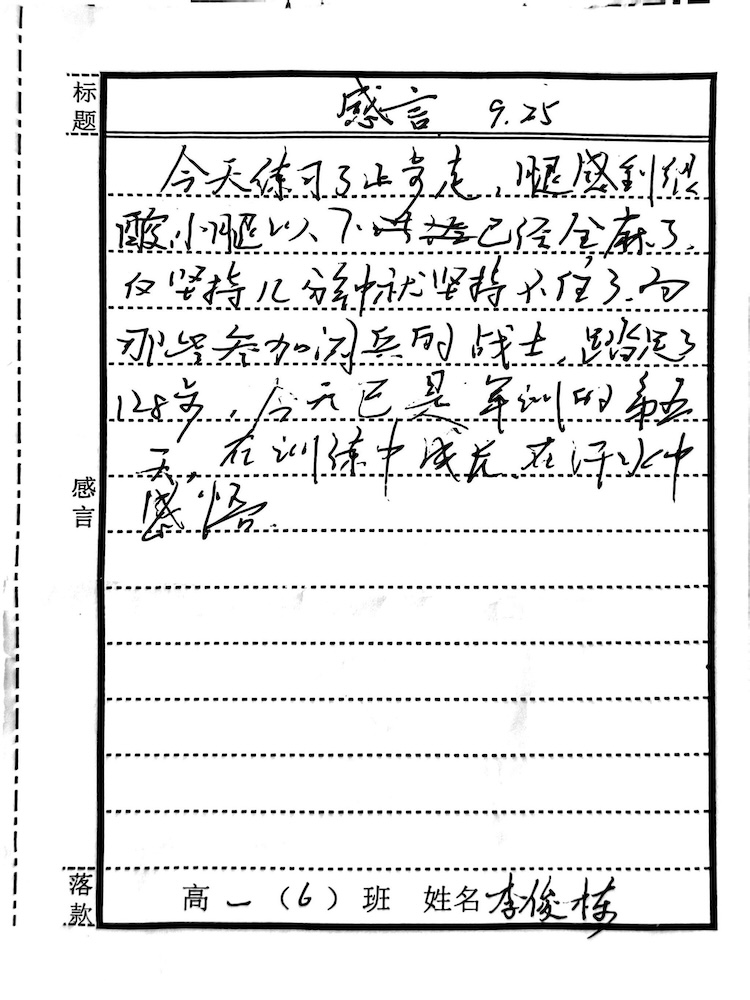 标题
感言 9.25
今天练习了正步走，腿感到很
酸，小腿以下已经全麻了，
仅坚持几分钟就坚持不住了，而
那些参加阅兵的战士，踢足了
128步，今天已是军训的第五
天，在训练中成长，在汗水中
感悟。
感言
落款
高一（6）班 姓名 李俊栋